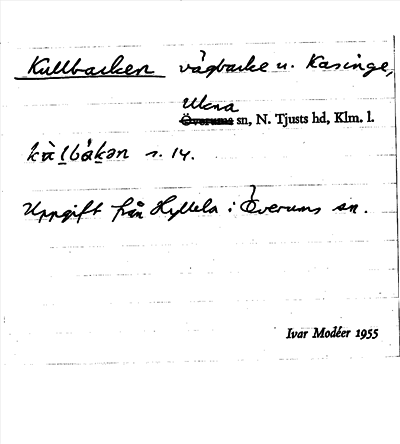 Kullbacken vägbacke u. Kasinge,
Ukna
Överums sn, N. Tjusts hd, Klm. l.
kàl̠bák̠ən s. 14.
Uppgift från Hyllela i Överums sn.
Ivar Modéer 1955